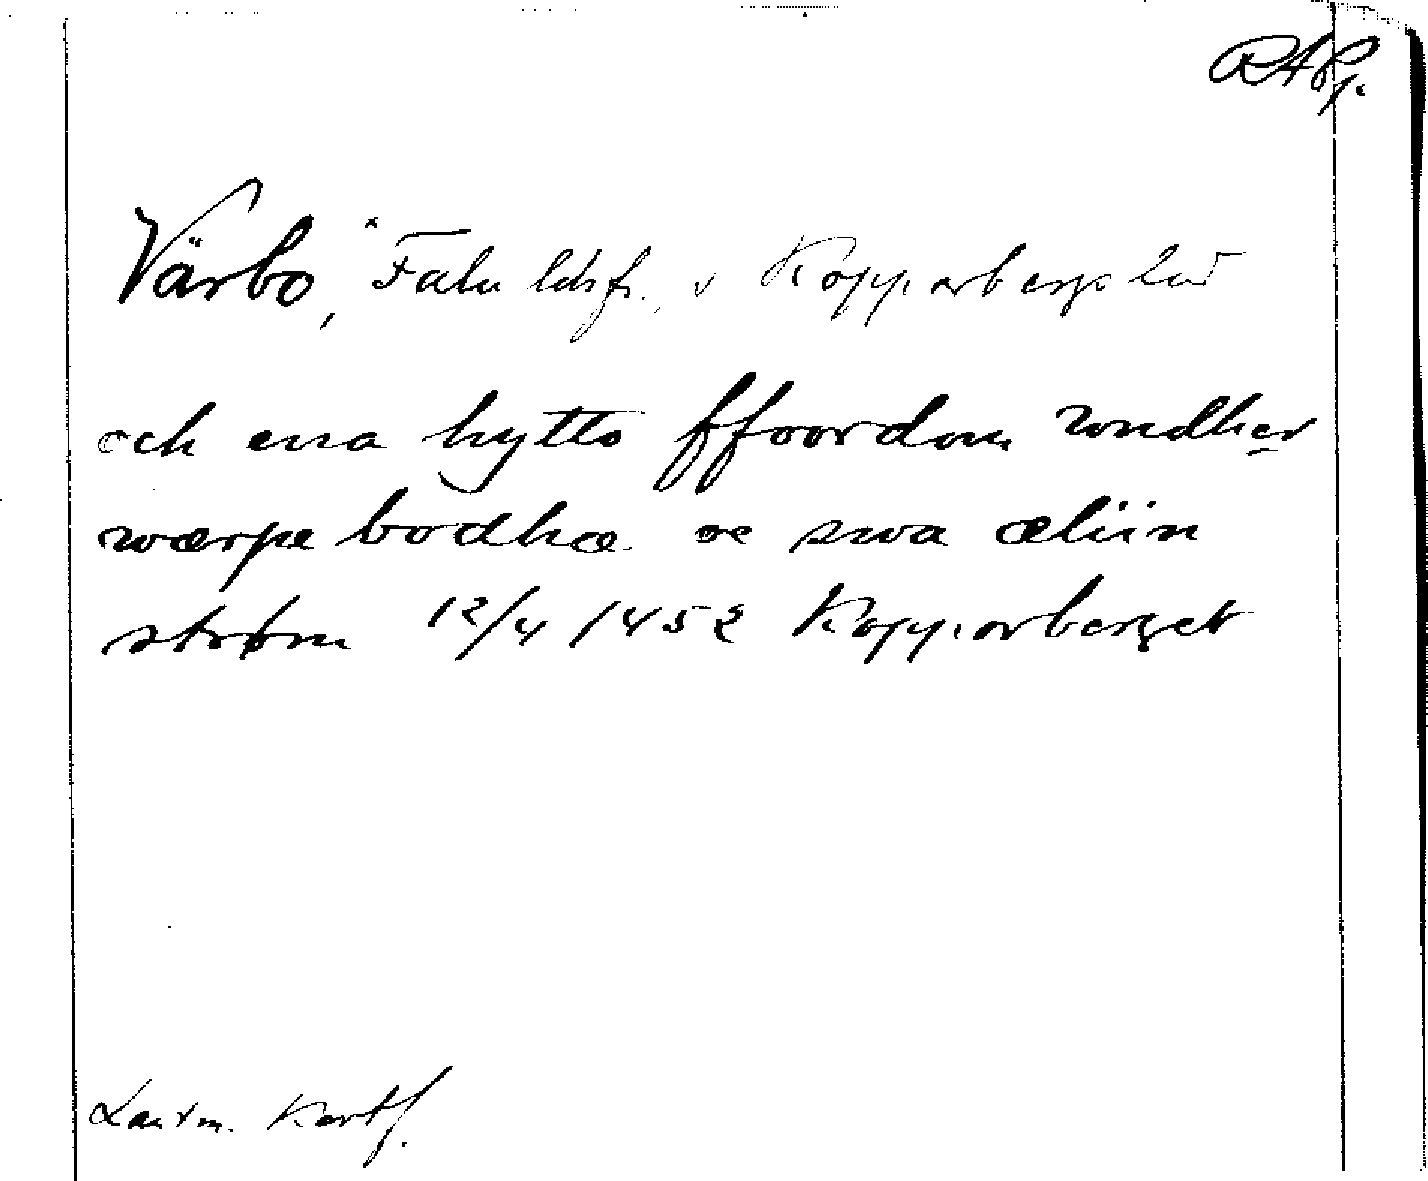 RAP.
Värbo, Falu ldsf., v Kopparbergs län
och ena hytto ffoordom wndher
wærpa bodhæ oc swa æliin
strøm 12/4 1452 Kopparberget
Lantm. Kartf.